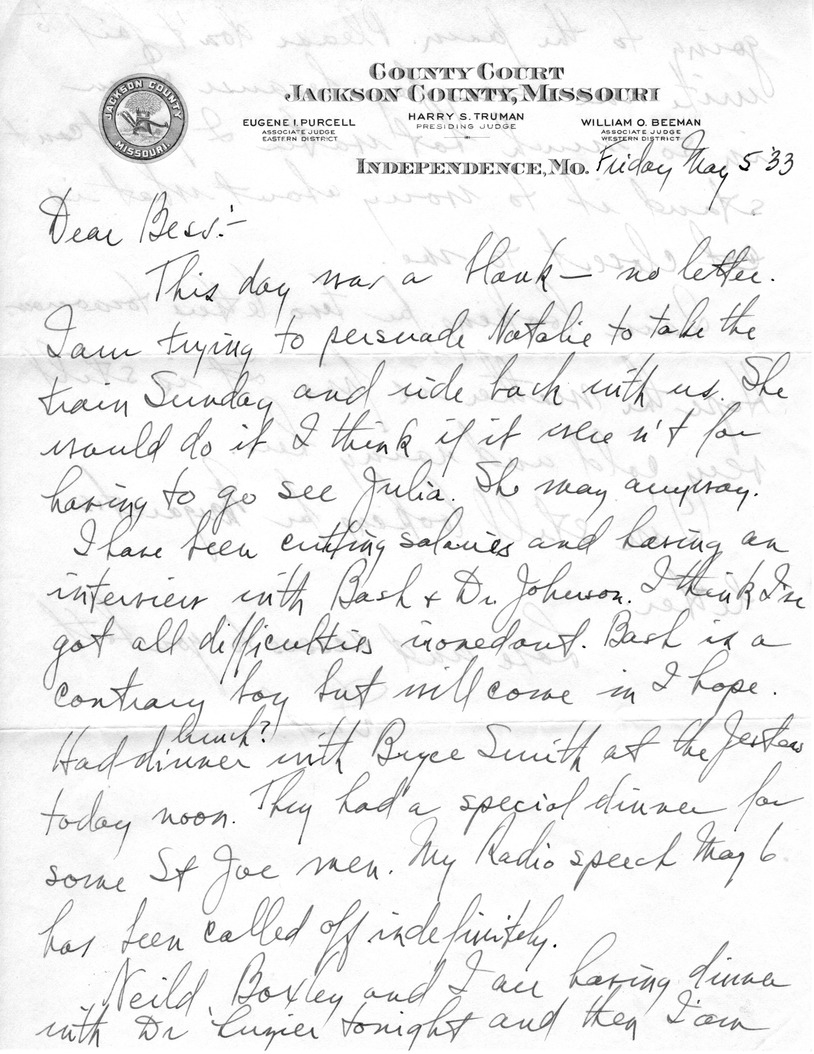 COUNTY COURT
JACKSON COUNTY, MISSOURI
JACKSON COUNTY
MISSOURI
EUGENE I. PURCELL
ASSOCIATE JUDGE
EASTERN DISTRICT
HARRY S. TRUMAN
PRESIDING JUDGE
WILLIAM O. BEEMAN
ASSOCIATE JUDGE
WESTERN DISTRICT
INDEPENDENCE, MO. Friday May 5 '33
Dear Bess:-
This day was a blank — no letter.
I am trying to persuade Natalie to take the
train Sunday and ride back with us. She
would do it I think if it were n't for
having to go see Julia. She may anyway.
I have been cutting salaries and having an
interview with Bash & Dr. Johnson. I think I've
got all difficulties ironed out. Bash is a
contrary boy but will come in I hope.
lunch?
Had dinner with Bryce Smith at the Jesters
today noon. They had a special dinner for
some St Joe men. My Radio speech May 6
has been called off indefinitely.
Neild, Boxley and I are having dinner
with Dr. Luzier tonight and then I am